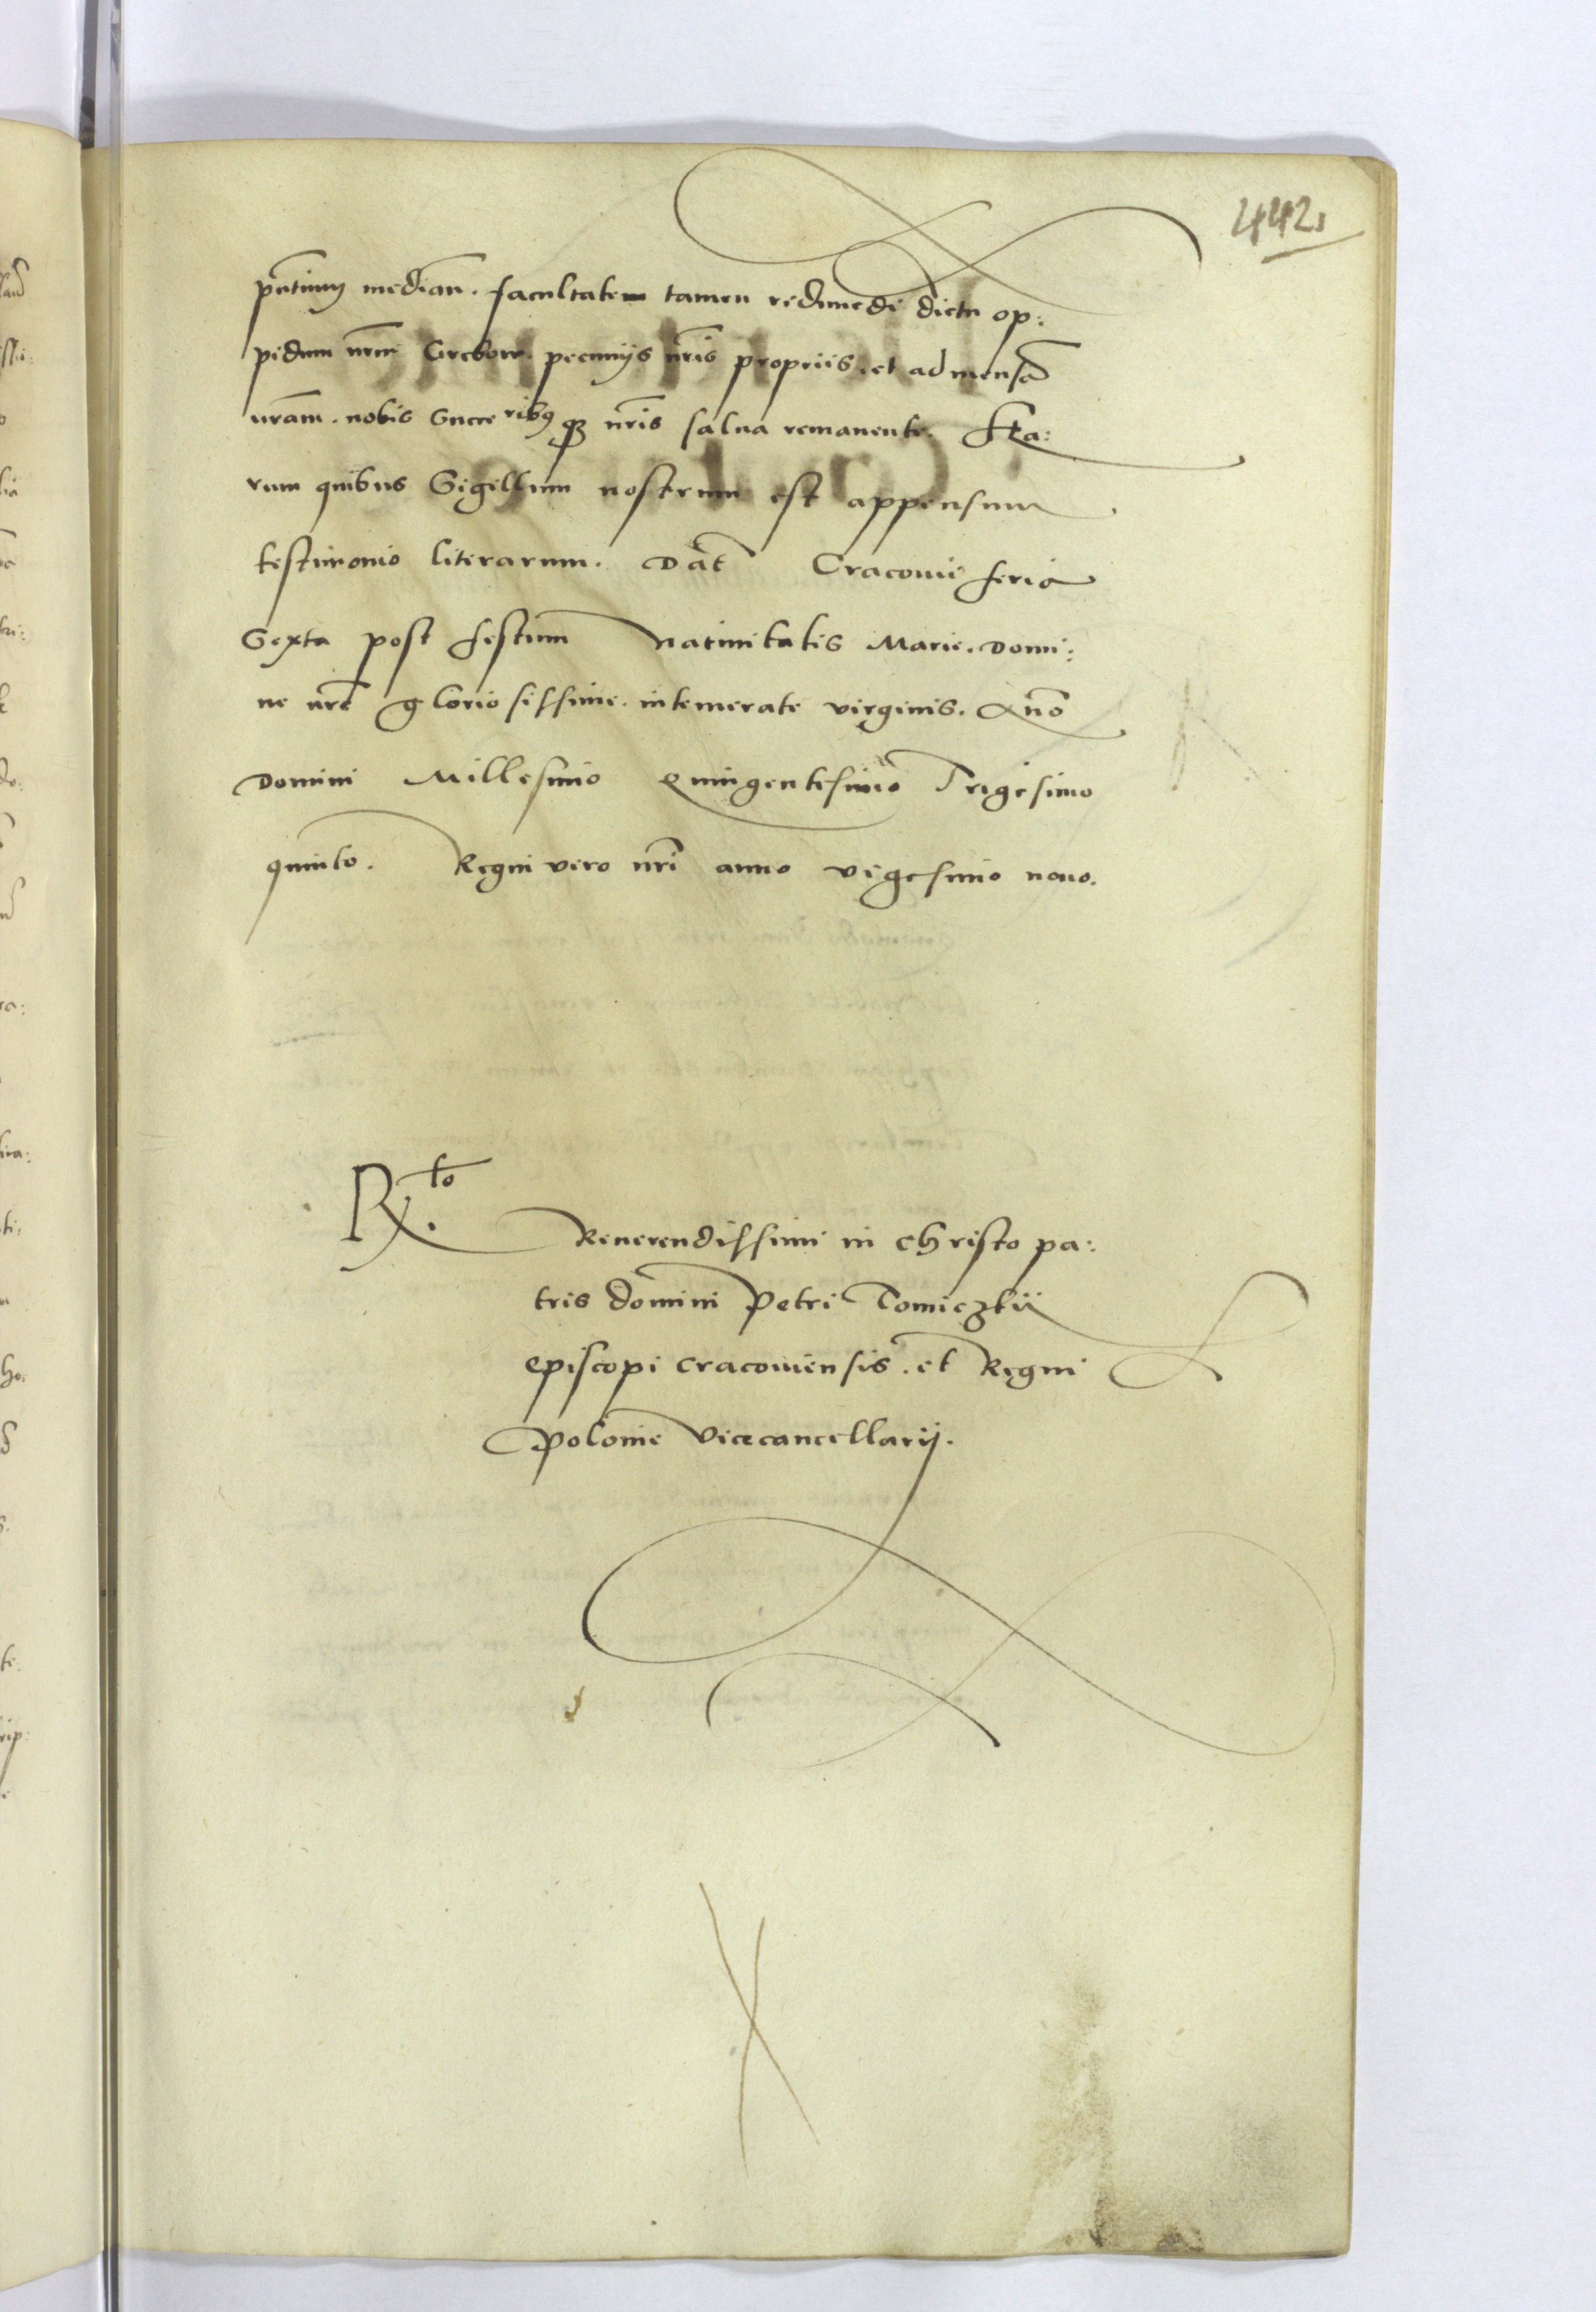 442
pñtium median̄. facultatem tamen redimēdi dictu op:
pidum nr̄m Grebow. pecuniis nr̄is propriis. et ad mensā
nr̄am. nobis Succeribꝰ qꝫ nr̄is salua remanente. Ha:
rum quibus Sigillum nostrum est appensum
testimonio literarum. Dat̄ Cracovie feria
Sexta post festum natiuitatis Marie. Domi:
ne nr̄e gloriosissime. intemerate virginis. Anō
Domini Millesimo quingentesimo Trigesimo
quinto. Regni vero nr̄i anno vigesimo nono.
R.to
Reuerendissimi in christo pa:
tris domini Petri Tomiczkii
episcopi cracouiensis. et Regni
Polonie Vicecancellarij.